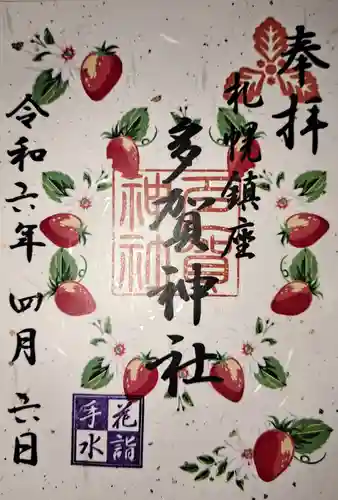 奉拝
札幌鎮座
多賀神社
多賀神社
令和六年四月六日
花詣
手水